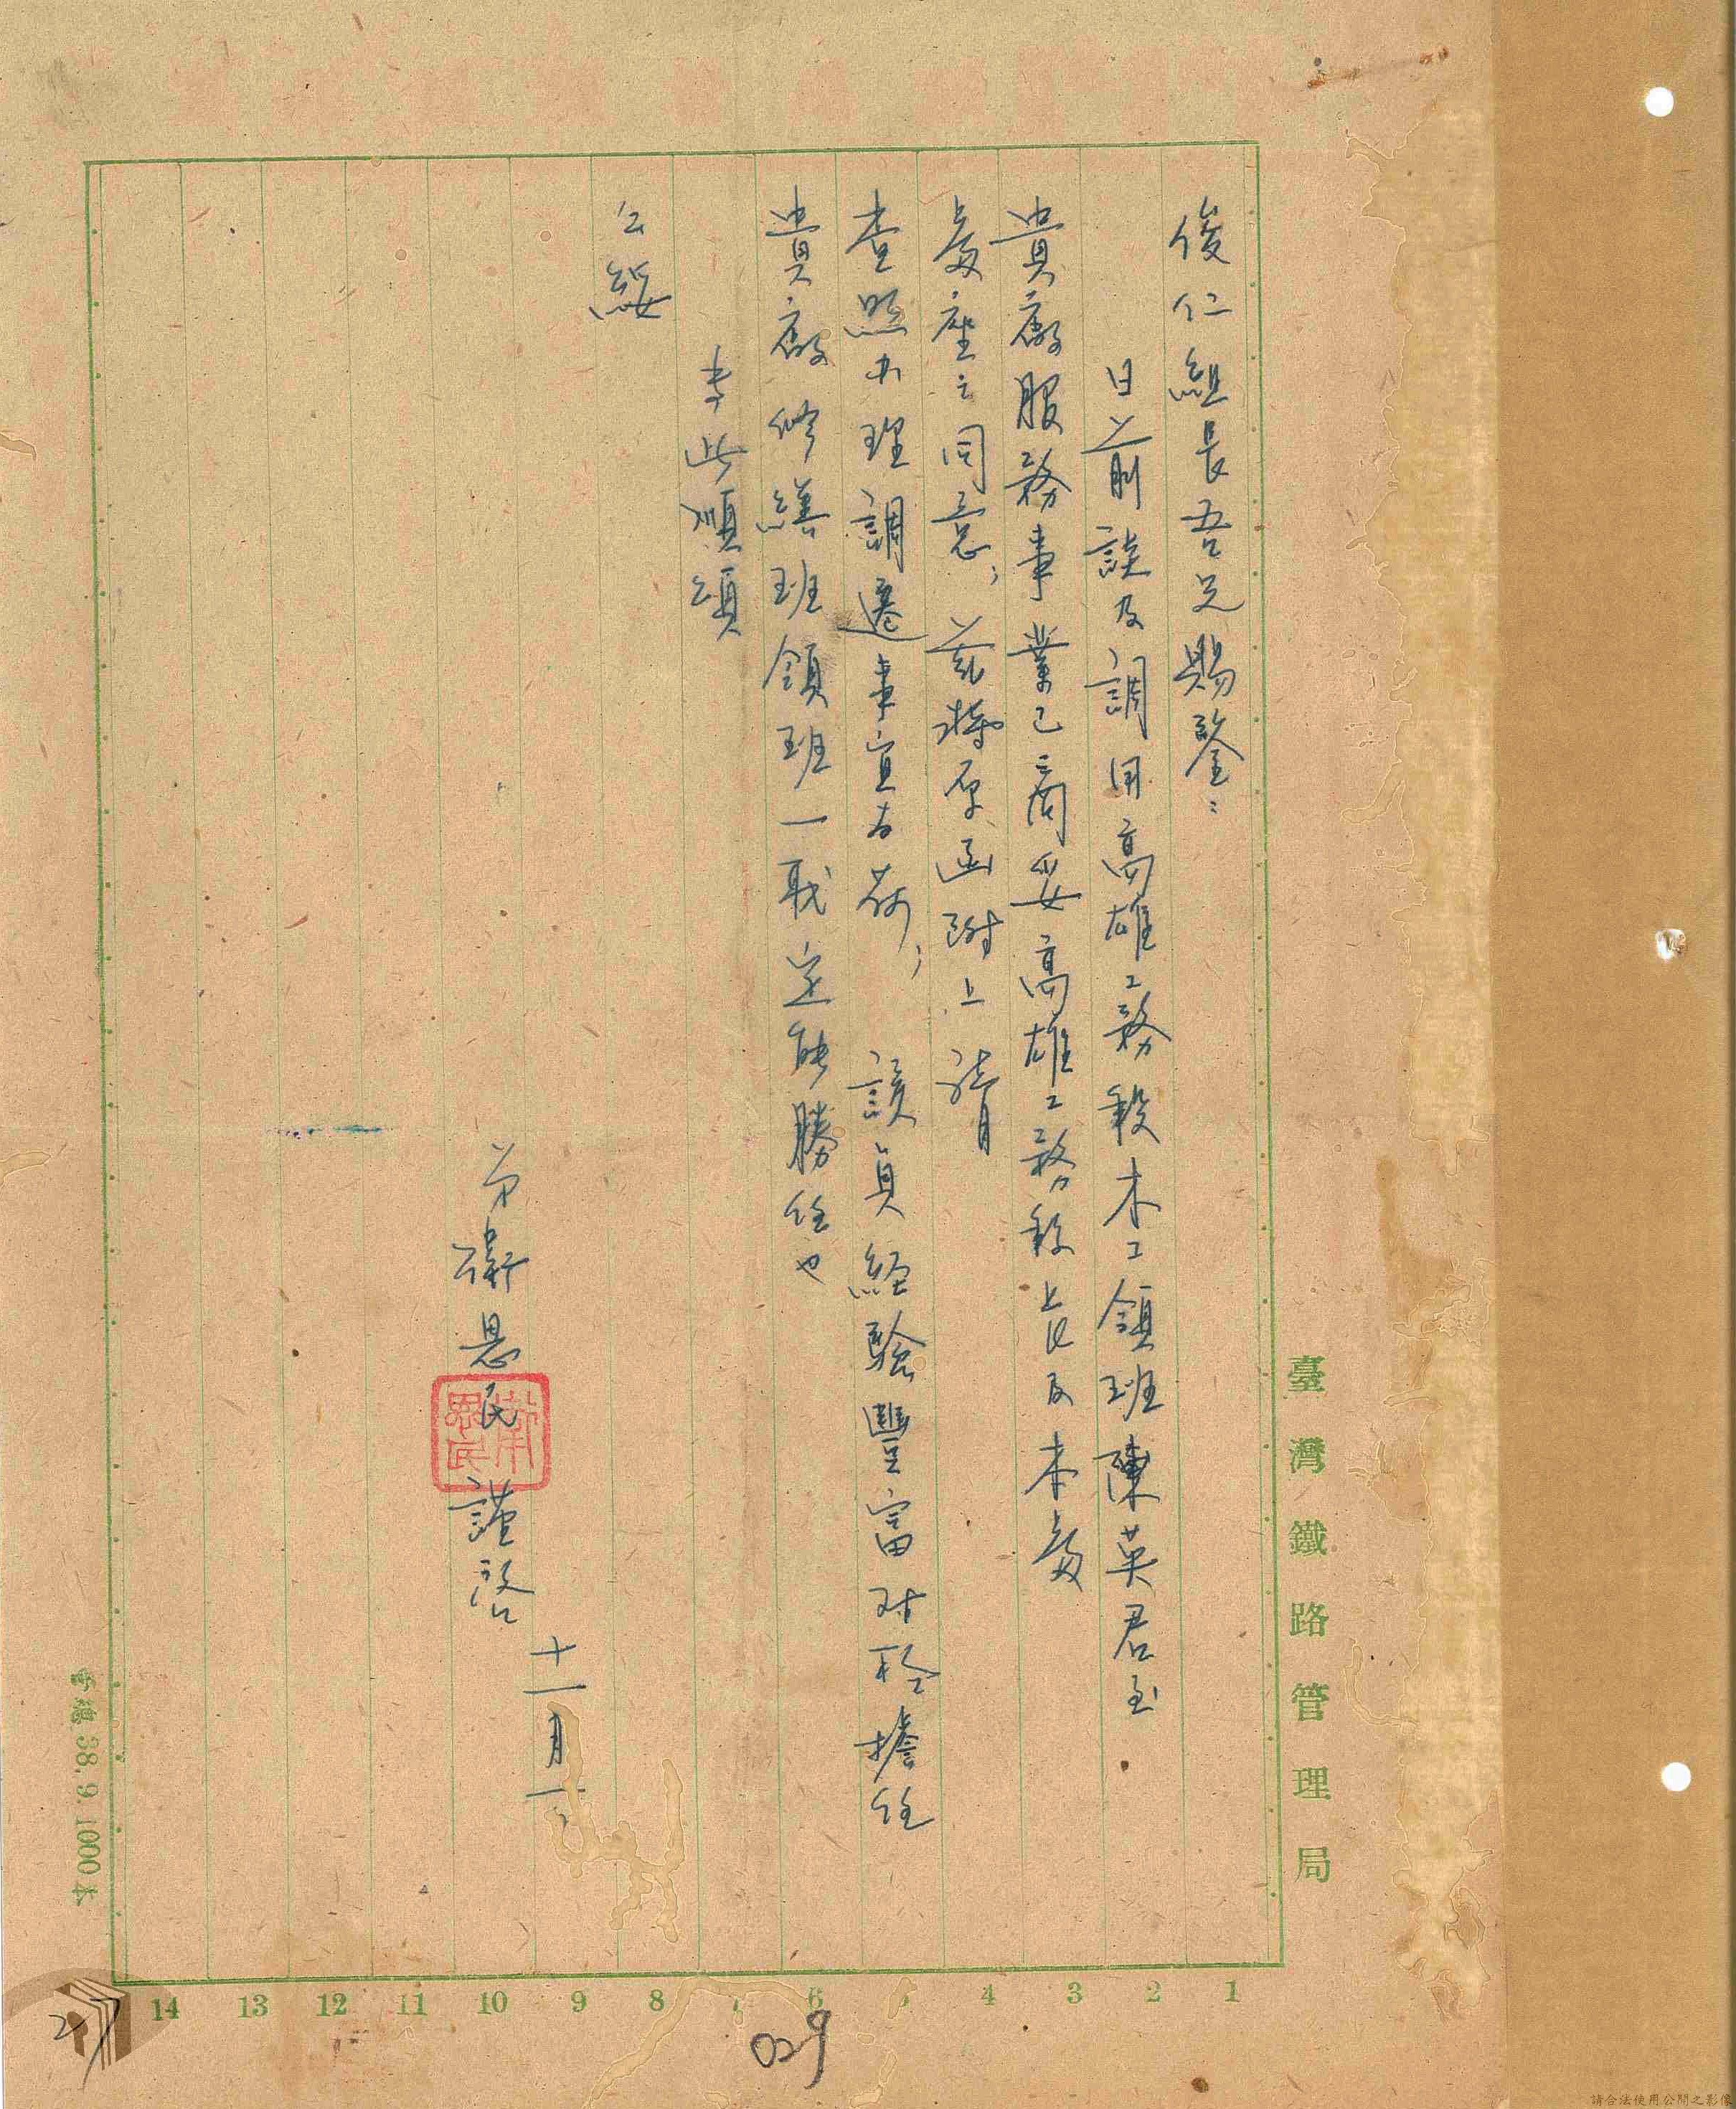 俊仁組長吾兄賜鑒：
日前談及調用高雄工務段木工領班陳英君至
貴廠服務事業已商妥高雄工務段段長及本處
處座之同意；茲將原函附上 請
查照办理調遷事宜為荷； 該員經驗豐富对於擔任
貴廠修繕班領班一职定能勝任也
專此順頌
公綏
弟衛思民謹啓
衛思民
十一月一
臺灣鐵路管理局
38.9.1000本
1 2 3 4 5 6 7 8 9 10 11 12 13 14
029
請合法使用公開之影像